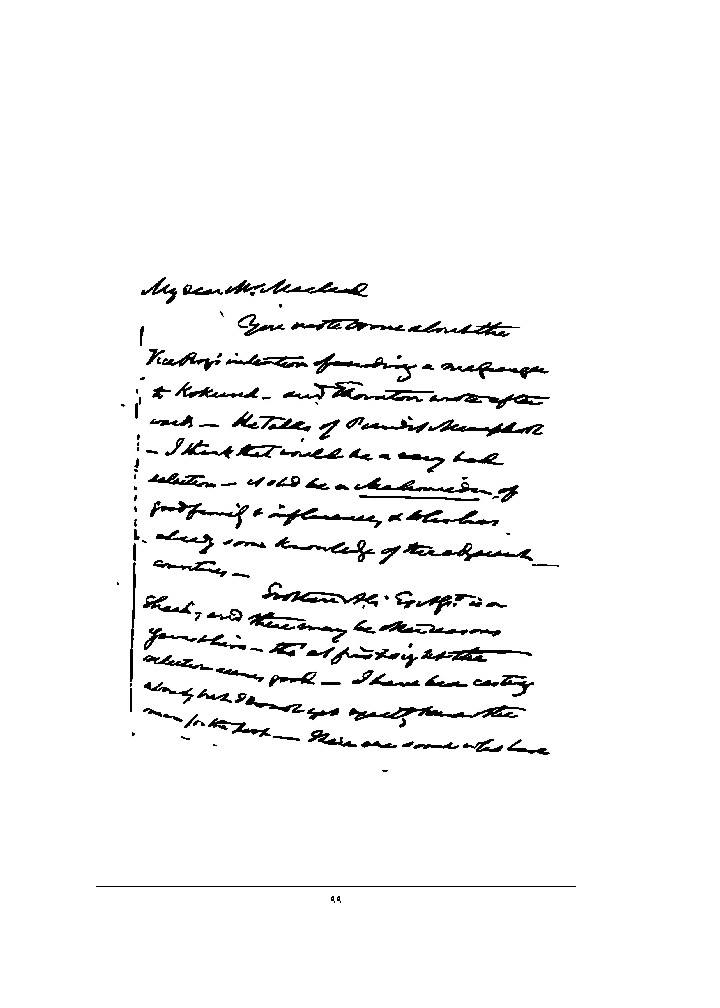 My dear Mr. Macleod
You wrote to me about the
Viceroy's intention of sending a messenger
to Kokund — and Thornton wrote after
wards — He talks of Pundit Munphool
— I think that would be a very bad
selection — it shd be a Mahomedan of
good family & influence, & who has
already some knowledge of the adjacent
countries —
Ali is a
Sheah, and there may be other reasons
against him — tho' at first sight the
selection seems good — I have been casting
about, but I cannot myself the
man for the — There are some who have
99